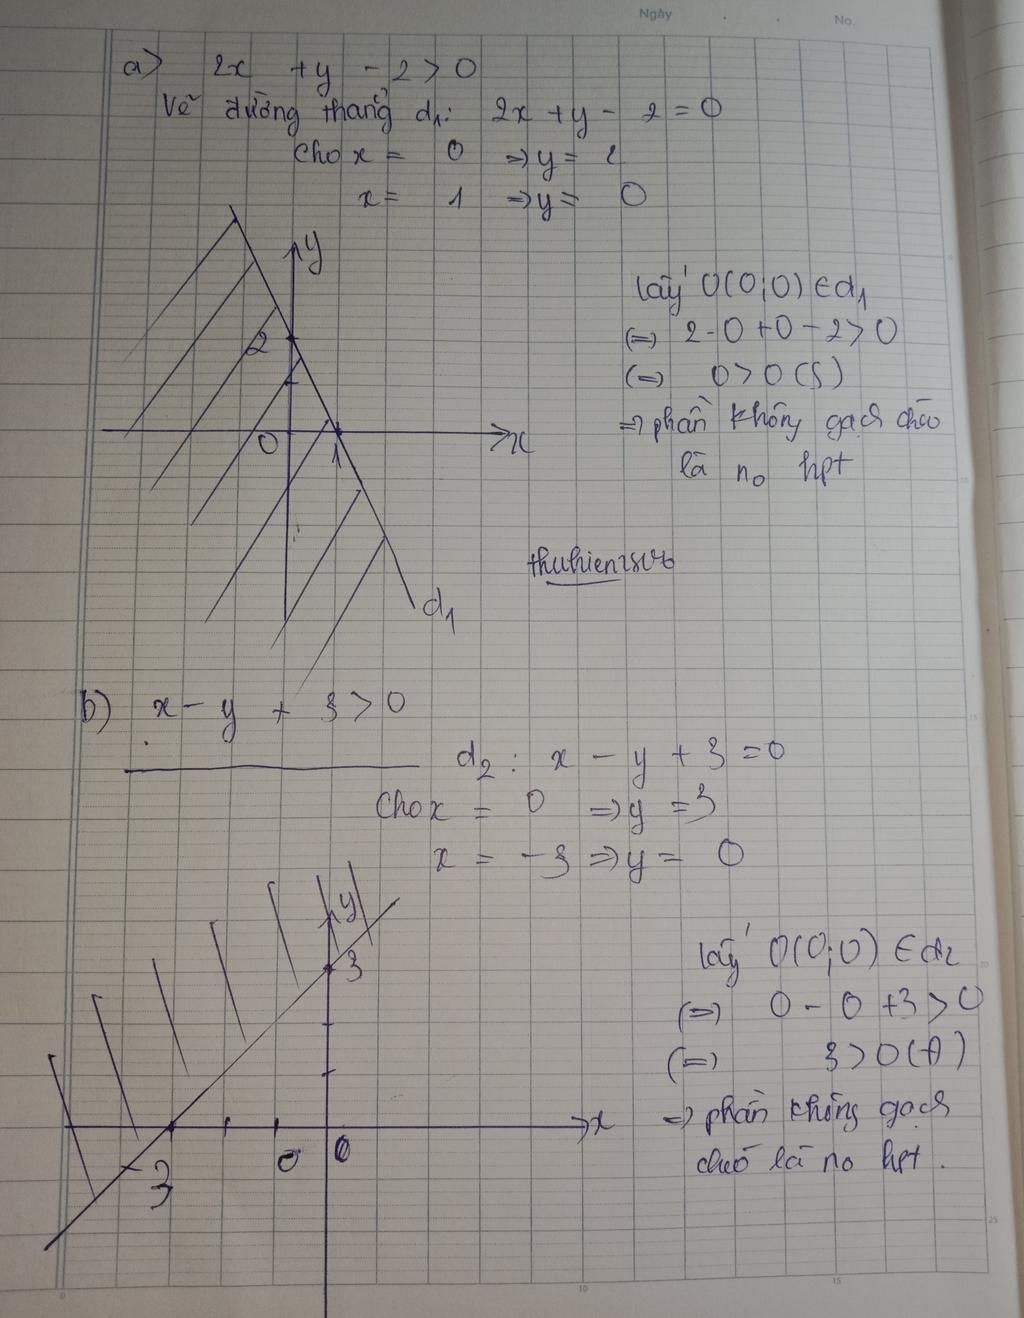 Ngày . . No.
a> 2x + y - 2 > 0
Vẽ đường thẳng d₁: 2x + y - 2 = 0
Cho x = 0 => y = 2
x = 1 => y = 0
y
2
0
1
x
d₁
lấy O(0;0) ∈ d₁
(=) 2-0+0-2>0
(=) 0>0 (S)
=> phần không gạch chéo
là no hpt
b) x - y + 3 > 0
d₂: x - y + 3 = 0
Cho x = 0 => y = 3
x = -3 => y = 0
y
3
x
0
0
-3
lấy O(0;0) ∈ d₂
(=) 0 - 0 + 3 > 0
(=) 3 > 0 (Đ)
=> phần không gạch
chéo là no hpt.